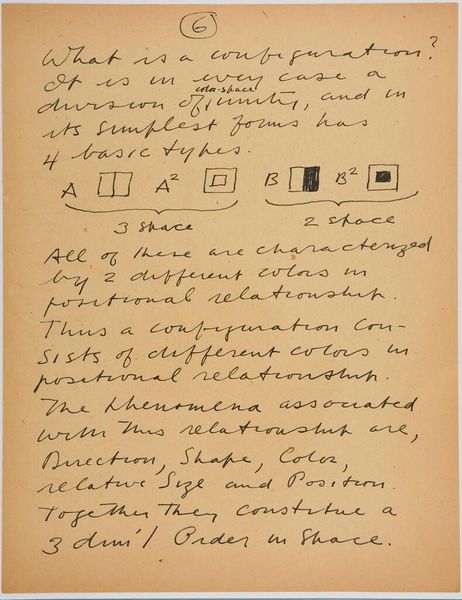 6
What is a configuration?
It is in every case a
color-space
division of, unity, and in
its simplest forms has
4 basic types.
A A² B B²
3 space 2 space
All of these are characterized
by 2 different colors in
positional relationship.
Thus a configuration con-
sists of different colors in
positional relationship.
The phenomena associated
with this relationship are,
Direction, Shape, Color,
relative Size and Position.
Together they constitue a
3 dim'l Order in Space.